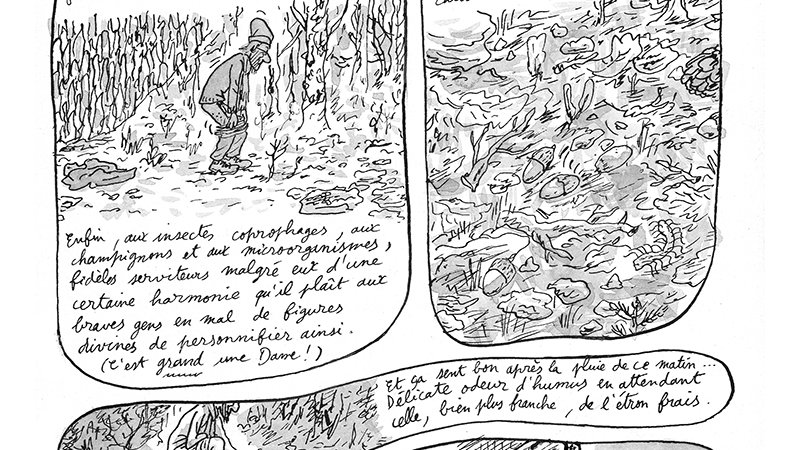 Enfin, aux insectes coprophages, aux
champignons et aux microorganismes,
fidèles serviteurs malgré eux d'une
certaine harmonie qu'il plaît aux
braves gens en mal de figures
divines de personnifier ainsi.
(C'est grand une Dame !)
Et ça sent bon après la pluie de ce matin...
Délicate odeur d'humus en attendant
celle, bien plus franche, de l'étron frais.